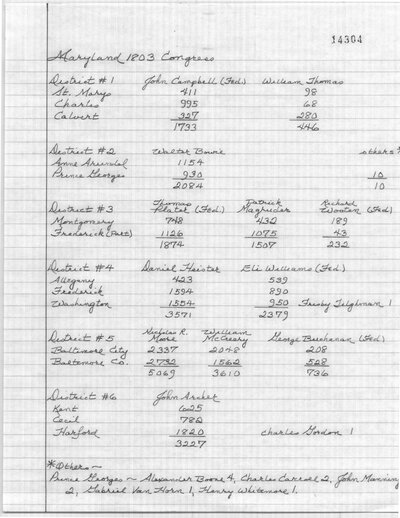 14304
Maryland 1803 Congress
District #1 John Campbell (Fed) William Thomas
St. Marys 411 98
Charles 995 68
Calvert 327 280
1733 446
District #2 Walter Bowie others*
Anne Arundel 1154
Prince Georges 930 10
2084 10
District #3 Thomas Plater (Fed) Patrick Magruder Richard Wooten (Fed)
Montgomery 748 432 189
Frederick (Part) 1126 1075 43
1874 1507 232
District #4 Daniel Heister Eli Williams (Fed)
Allegany 423 539
Frederick 1594 890
Washington 1554 950 Frisby Tilghman 1
3571 2379
District #5 Nicholas R. Moore William McCreary George Buchanan (Fed)
Baltimore City 2337 2048 208
Baltimore Co 2732 1562 528
5069 3610 736
District #6 John Archer
Kent 625
Cecil 782
Harford 1820 Charles Gordon 1
3227
*Others ~
Prince Georges ~ Alexander Boone 4, Charles Carroll 2, John Manning
2, Gabriel Van Horn 1, Henry Whitemore 1.